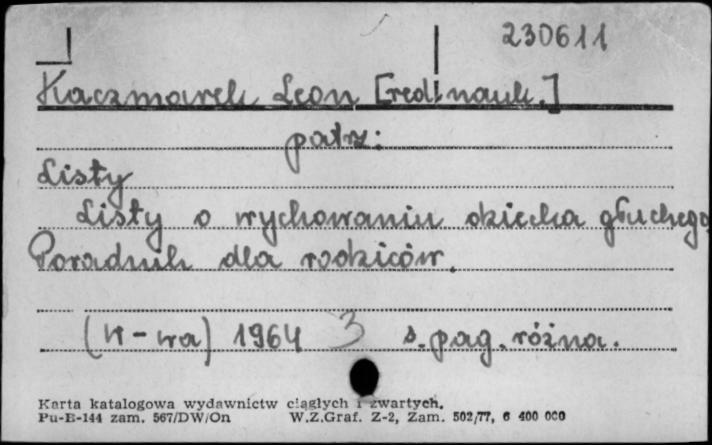 230611
Kaczmarek Leon [red. nauk.]
patrz:
Listy
Listy o wychowaniu dziecka głuchego
Poradnik dla rodziców.
(W-wa) 1964 3 s. pag. różna.
Karta katalogowa wydawnictw ciągłych i zwartych.
Pu-E-144 zam. 567/DW/On W.Z.Graf. Z-2, Zam. 502/77, 6 400 000